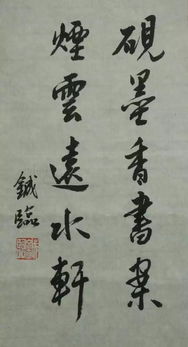 硯墨香書案
煙雲遠水軒
鉞臨